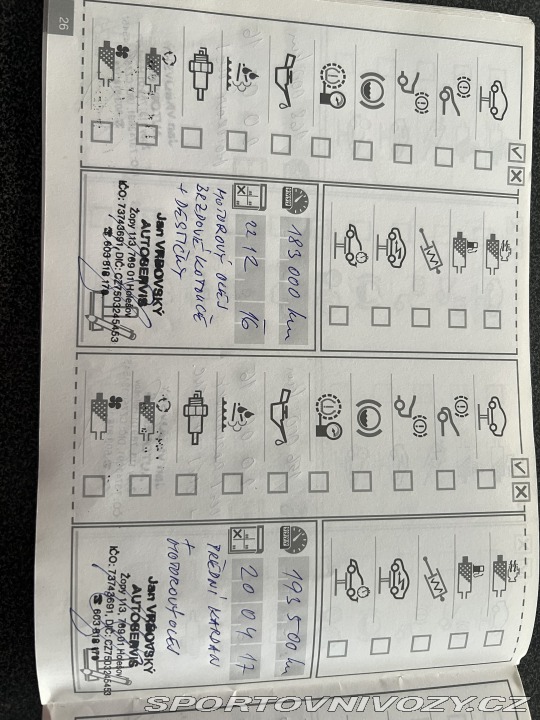 26
183 000 km
02 12 16
MOTOROVÝ OLEJ
BRZDOVÉ KOTOUČE
+ DESTIČKY
Jan VRBOVSKÝ
AUTOSERVIS
Žopy 113, 769 01 Holešov
IČO: 73743691, DIČ: CZ7503245453
☎ 603 818 170
193 500 km
20 04 17
PŘEDNÍ KARDAN
+
MOTOROVÝ OLEJ
Jan VRBOVSKÝ
AUTOSERVIS
Žopy 113, 769 01 Holešov
IČO: 73743691, DIČ: CZ7503245453
☎ 603 818 170
SPORTOVNIVOZY.CZ